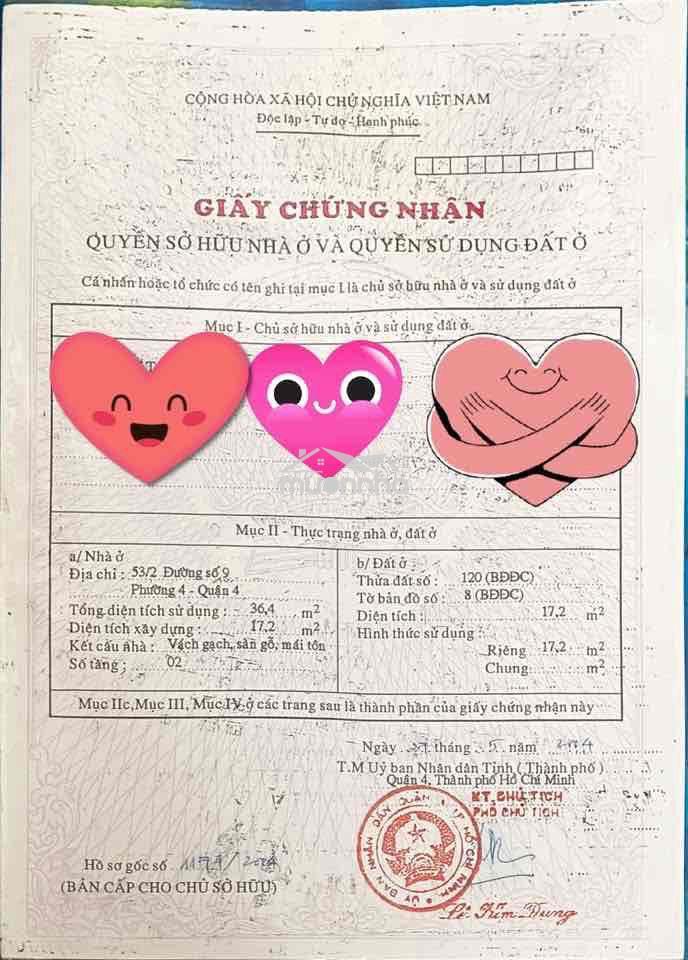 CỘNG HÒA XÃ HỘI CHỦ NGHĨA VIỆT NAM
Độc lập - Tự do - Hạnh phúc
GIẤY CHỨNG NHẬN
QUYỀN SỞ HỮU NHÀ Ở VÀ QUYỀN SỬ DỤNG ĐẤT Ở
Cá nhân hoặc tổ chức có tên ghi tại mục I là chủ sở hữu nhà ở và sử dụng đất ở
Mục I - Chủ sở hữu nhà ở và sử dụng đất ở.
muonnha
Mục II - Thực trạng nhà ở, đất ở
a/ Nhà ở
Địa chỉ : 53/2 Đường số 9
Phường 4 - Quận 4
Tổng diện tích sử dụng : 36,4 m2
Diện tích xây dựng : 17,2 m2
Kết cấu nhà : Vách gạch, sàn gỗ, mái tôn
Số tầng : 02
b/ Đất ở
Thửa đất số : 120 (BĐĐC)
Tờ bản đồ số : 8 (BĐĐC)
Diện tích : 17,2 m2
Hình thức sử dụng :
Riêng 17,2 m2
Chung m2
Mục IIc, Mục III, Mục IV ở các trang sau là thành phần của giấy chứng nhận này
Ngày tháng 5 năm
T.M Uỷ ban Nhân dân Tỉnh ( Thành phố )
Quận 4, Thành phố Hồ Chí Minh
KT. CHỦ TỊCH
PHÓ CHỦ TỊCH
ỦY BAN NHÂN DÂN QUẬN 4 TP HỒ CHÍ MINH
Hồ sơ gốc số
(BẢN CẤP CHO CHỦ SỞ HỮU)
Lê Kim Dung